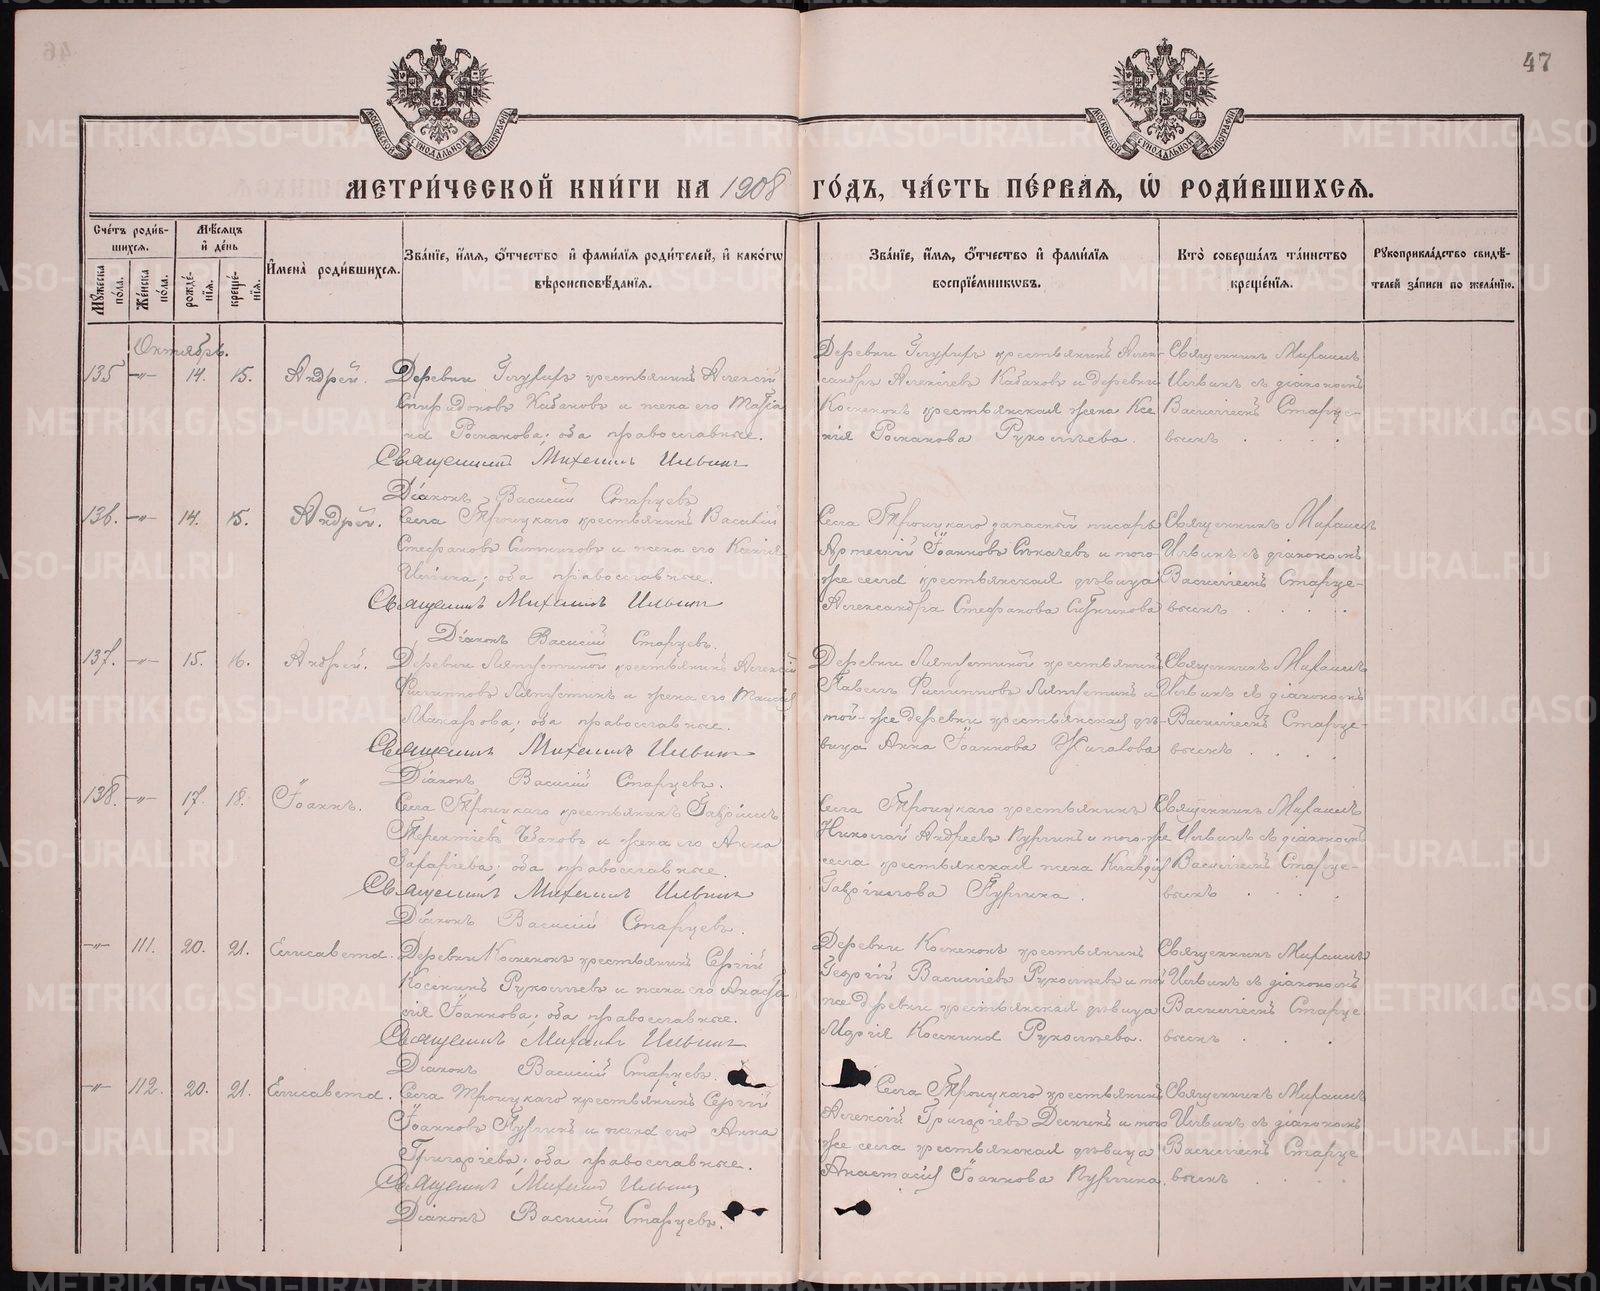 46
47
МОСКОВСКОЙ СѴНОДАЛЬНОЙ ТИПОГРАФІИ
МОСКОВСКОЙ СѴНОДАЛЬНОЙ ТИПОГРАФІИ
МЕТРИ́ЧЕСКОЙ КНИ́ГИ НА 1908 ГО́ДЪ, ЧА́СТЬ ПЕ́РВАЯ, Ѡ РОДИ́ВШИХСЯ.
Сче́тъ роди́в-
шихся.
Му́жеска по́ла.
Же́нска по́ла.
Мѣ́сяцъ
и҆ де́нь
рожде́-
нїя.
креще́-
нїя.
И҆мена̀ роди́вшихся.
Зва́нїе, и҆́мя, ѻ҆́тчество и҆ фами́лїя роди́телей, и҆ како́гѡ
вѣроисповѣ́данїя.
Зва́нїе, и҆́мя, ѻ҆́тчество и҆ фами́лїя
воспрїе́мникѡвъ.
Кто̀ соверша́лъ та́инство
креще́нїя.
Рꙋкоприкла́дство свидѣ́-
телей за́писи по жела́нїю.
Октябрь.
135 —"— 14. 15. Андрей.
Деревни Глухихъ крестьянинъ Алексій
Спиридоновъ Кабаковъ и жена его Марія
на Романова; оба православные.
Священникъ Михаилъ Ильинъ
Діаконъ Василій Старцевъ
Деревни Глухихъ крестьянинъ Алек-
сандръ Алексіевъ Кабаковъ и деревни
крестьянская жена Ксе
нія Романова Рукомъева.
Священникъ Михаилъ
Ильинъ съ діакономъ
Василіемъ Старце-
вымъ
136. —"— 14. 15. Андрей.
Села Троицкаго крестьянинъ Василій
Стефановъ Ситниковъ и жена его Ксенія
оба православные.
Священникъ Михаилъ Ильинъ
Діаконъ Василій Старцевъ.
Села Троицкаго запасной писарь
Іоанновъ и того-
же села крестьянская дѣвица
Александра Стефанова Ситникова
Священникъ Михаилъ
Ильинъ съ діакономъ
Василіемъ Старце-
вымъ
137. —"— 15. 16. Андрей.
Деревни Ляпустиной крестьянинъ Алексій
Филипповъ Ляпустинъ и жена его
Макарова; оба православные.
Священникъ Михаилъ Ильинъ
Діаконъ Василій Старцевъ.
Деревни Ляпустиной крестьянинъ
Павелъ Филипповъ Ляпустинъ и
той-же деревни крестьянская дѣ-
вица Анна Іоаннова
Священникъ Михаилъ
Ильинъ съ діакономъ
Василіемъ Старце-
вымъ
138. —"— 17. 18. Іоаннъ.
Села Троицкаго крестьянинъ Гавріилъ
Терентіевъ и жена его Анна
Захаріева; оба православные.
Священникъ Михаилъ Ильинъ
Діаконъ Василій Старцевъ.
Села Троицкаго крестьянинъ
Николай Андреевъ Пургинъ и того-же
села крестьянская жена Клавдія
Гавріилова Пургина.
Священникъ Михаилъ
Ильинъ съ діакономъ
Василіемъ Старце-
вымъ
—"— 111. 20. 21. Елисавета.
Деревни крестьянинъ Сергій
и жена его Анаста
сія Іоаннова; оба православные.
Священникъ Михаилъ Ильинъ
Діаконъ Василій Старцевъ.
Деревни крестьянинъ
Георгій Василіевъ и той
же деревни крестьянская дѣвица
Священникъ Михаилъ
Ильинъ съ діакономъ
Василіемъ Старце
вымъ
—"— 112. 20. 21. Елисавета.
Села Троицкаго крестьянинъ Сергій
Іоанновъ Пургинъ и жена его Анна
Григоріева; оба православные.
Священникъ Михаилъ Ильинъ
Діаконъ Василій Старцевъ.
Села Троицкаго крестьянинъ
Алексій Григоріевъ и того
же села крестьянская дѣвица
Анастасія Іоаннова Пургина.
Священникъ Михаилъ
Ильинъ съ діакономъ
Василіемъ Старце
вымъ
METRIKI.GASO-URAL.RU